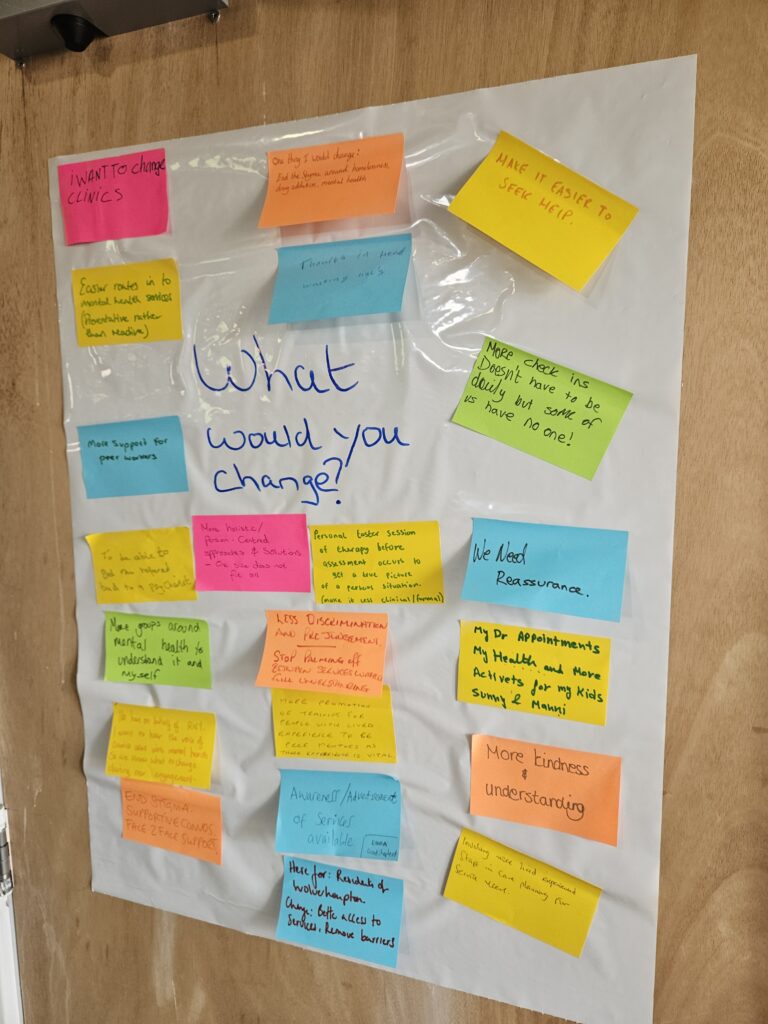 i WANT TO change
CLINICS
One thing I would change:
End the Stigma around homelessness,
drug addiction, mental health
MAKE IT EASIER TO
SEEK HELP.
Easier routes in to
mental health services
(Preventative rather
than reactive)
waiting
What
would you
change?
More check ins
Doesn't have to be
daily but some of
us have no one!
More support for
peer workers
To be able to
back to a
More holistic/
person-Centred
approaches & Solutions
- One size does not
fit all
Personal taster session
of therapy before
assessment occurs to
get a true picture
of a persons situation.
(make it less clinical/formal)
We Need
Reassurance.
More groups around
mental health to
understand it and
myself
LESS DISCRIMINATION
AND PREJUDGEMENT.
STOP PALMING off
BETWEEN SERVICES
FULL UNDERSTANDING
My Dr Appointments
My Health and More
Activets for my Kids
Sunny & Manni
MORE PROMOTION
OF TRAINING FOR
PEOPLE WITH LIVED
EXPERIENCE TO BE
PEER MENTORS AS
THEIR EXPERIENCE IS VITAL
to hear the voice of
so we know what to change
during our engagement.
More kindness
&
understanding
END STIGMA.
SUPPORTIVE CONVOS.
FACE-2-FACE SUPPORT.
Awareness/Advertisement
of Services
available
Involving more lived experienced
Staff in care planning for
Service users.
Here for: Residents of
Wolverhampton.
Change: Bette access to
Services, Remove barriers